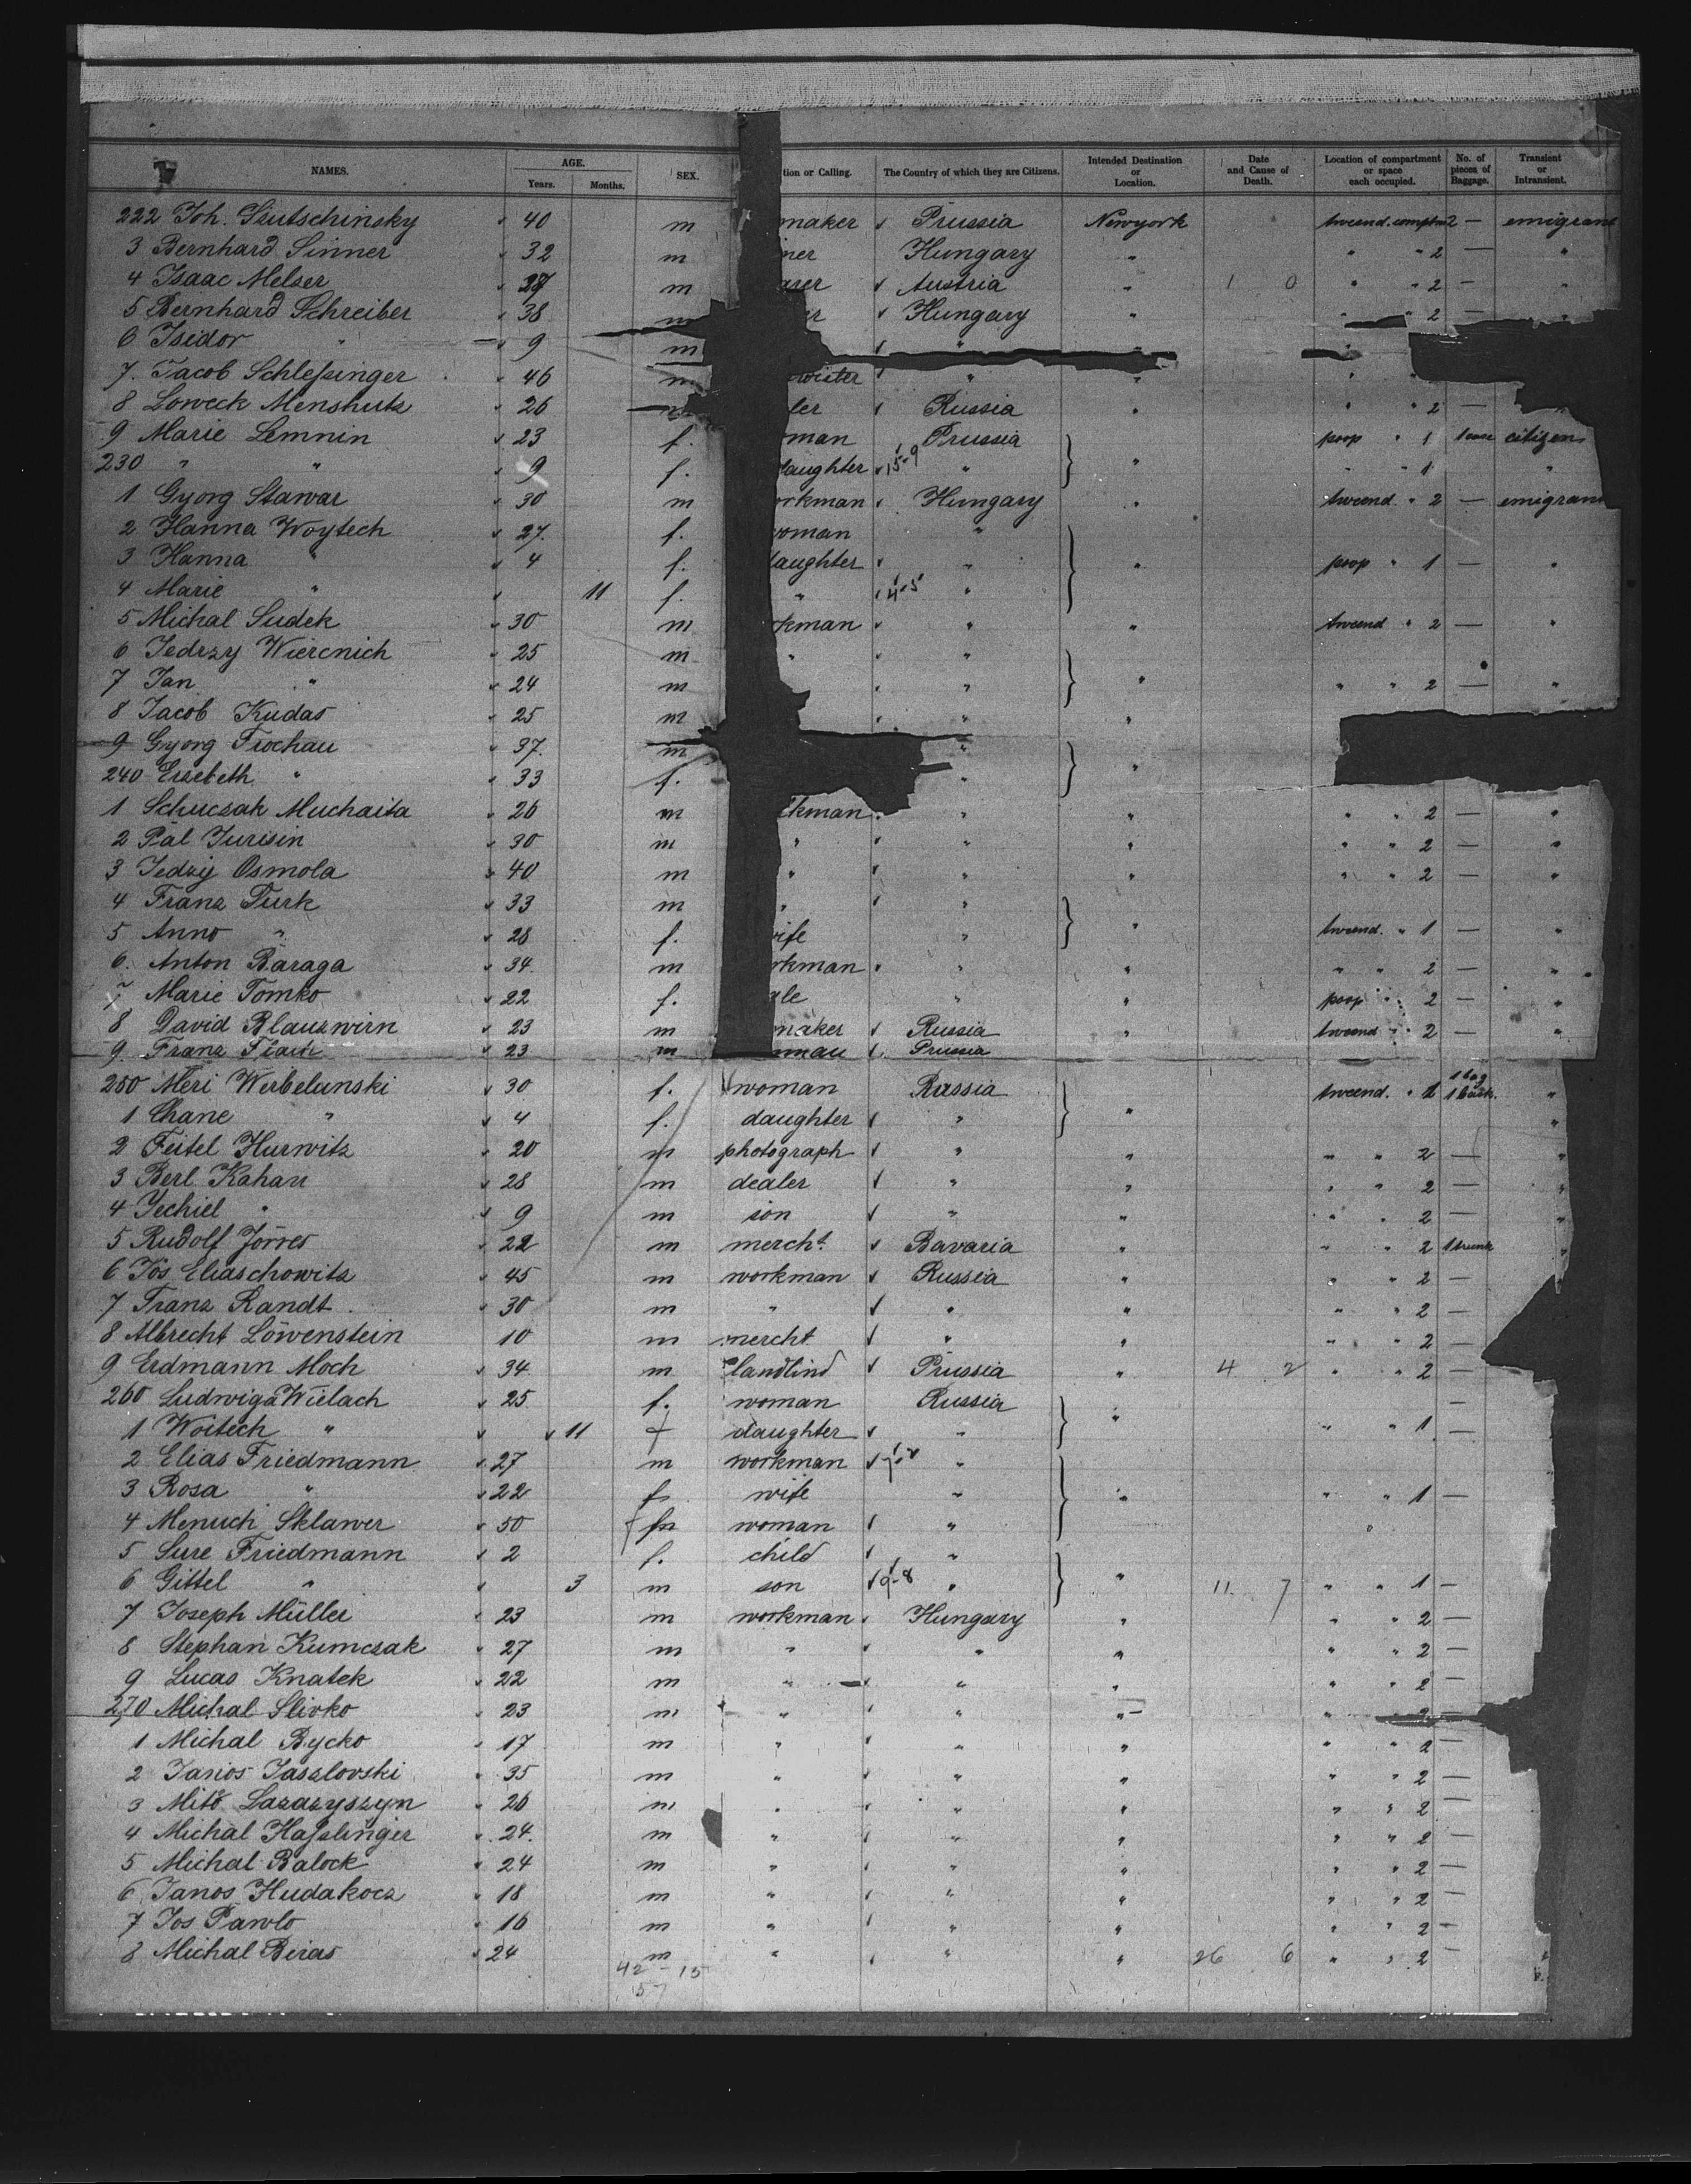 NAMES. AGE. Years. Months. SEX. tion or Calling. The Country of which they are Citizens. Intended Destination or Location. Date and Cause of Death. Location of compartment or space each occupied. No. of pieces of Baggage. Transient or Intransient.
222 Joh. 40 m maker Prussia Newyork tweend. 2 — emigrant
3 Bernhard Sinner 32 m ner Hungary " " " 2 — "
4 Isaac Melser m Austria " 1 0 " " 2 — "
5 Bernhard Schreiber 38 m er Hungary " " " 2 — "
6 Isidor " 9 m "
7. Jacob Schleßinger 46 m " " "
8 Loweck Menshutz 26 m ler Russia " " " 2 —
9 Marie Lemnin 23 f. oman Prussia poop " 1 citizen
230 " " 9 f. daughter 15-9 " " " " 1 "
1 Gyorg Stawar 30 m orkman Hungary " tweend. " 2 — emigran
2 Hanna Woytech 27. f. woman "
3 Hanna " 4 f. daughter " " poop " 1 — "
4 Marie " 11 f. " 4-5 "
5 Michal Sudek 30 m rkman " " tweend " 2 — "
6 Jedrzy Wiercnich 25 m " "
7 Jan " 24 m " " " " 2 — "
8 Jacob Kudas 25 m " "
9 Gyorg Frochau 37. m " "
240 Erzebeth " 33 f. "
1 Schuczak Muchaita 26 m kman " " " " 2 — "
2 Pal Jurisin 30 m " " " " " 2 — "
3 Jedzij Osmola 40 m " " " " " 2 — "
4 Franz Turk 33 m " "
5 Anno " 28 f. wife " " tweend. " 1 — "
6. Anton Baraga 34. m rkman " " " " 2 — "
7 Marie Tomko 22 f. gle " " poop " 2 — "
8 David Blauzwirn 23 m maker Russia " tweend " 2 — "
9. Franz 23 m man Prussia
250 Meri Werbelunski 30 f. woman Russia tweend. " 1 bag "
1 Chane " 4 f. daughter " " "
2 Feitel Hurwitz 20 m photograph " " " " 2 — "
3 Berl Kahan 28 m dealer " " " " 2 — "
4 Jechiel " 9 m son " " " " 2 — "
5 Rudolf Jörres 22 m mercht. Bavaria " " " 2 1 trunk "
6 Jos Eliaschowitz 45 m workman Russia " " " 2 —
7 Franz Randt 30 m " " " " " 2 —
8 Albrecht Löwenstein 10 m mercht " " " " 2 —
9 Erdmann Moch 34 m Prussia " 4 2 " " 2 —
260 Ludwiga Wielach 25 f. woman Russia —
1 Woiteck " 11 f daughter " " " " 1 —
2 Elias Friedmann 27 m workman "
3 Rosa " 22 f wife " " " " 1 —
4 Menuch Sklawer 50 f woman "
5 Sure Friedmann 2 f. child "
6 Gittel " 3 m son 9-8 " " 11 7 " " 1 —
7 Joseph Müller 23 m workman Hungary " " " 2 —
8 Stephan Kumczak 27 m " " " " " 2 —
9 Lucas Knatek 22 m " " " " " 2 —
270 Michal Slivko 23 m " " " " 2
1 Michal Bycko 17 m " " " " " 2 —
2 Janos Jaszlovski 35 m " " " " " 2 —
3 Mito Lazazyszyn 26 m " " " " " 2 —
4 Michal Haßlinger 24. m " " " " " 2 —
5 Michal Balock 24 m " " " " " 2 —
6 Janos Hudakocz 18 m " " " " " 2 —
7 Jos Pawlo 16 m " " " " " 2 —
8 Michal Biras 24 m " " " 26 6 " " 2 — "
42 - 15
57